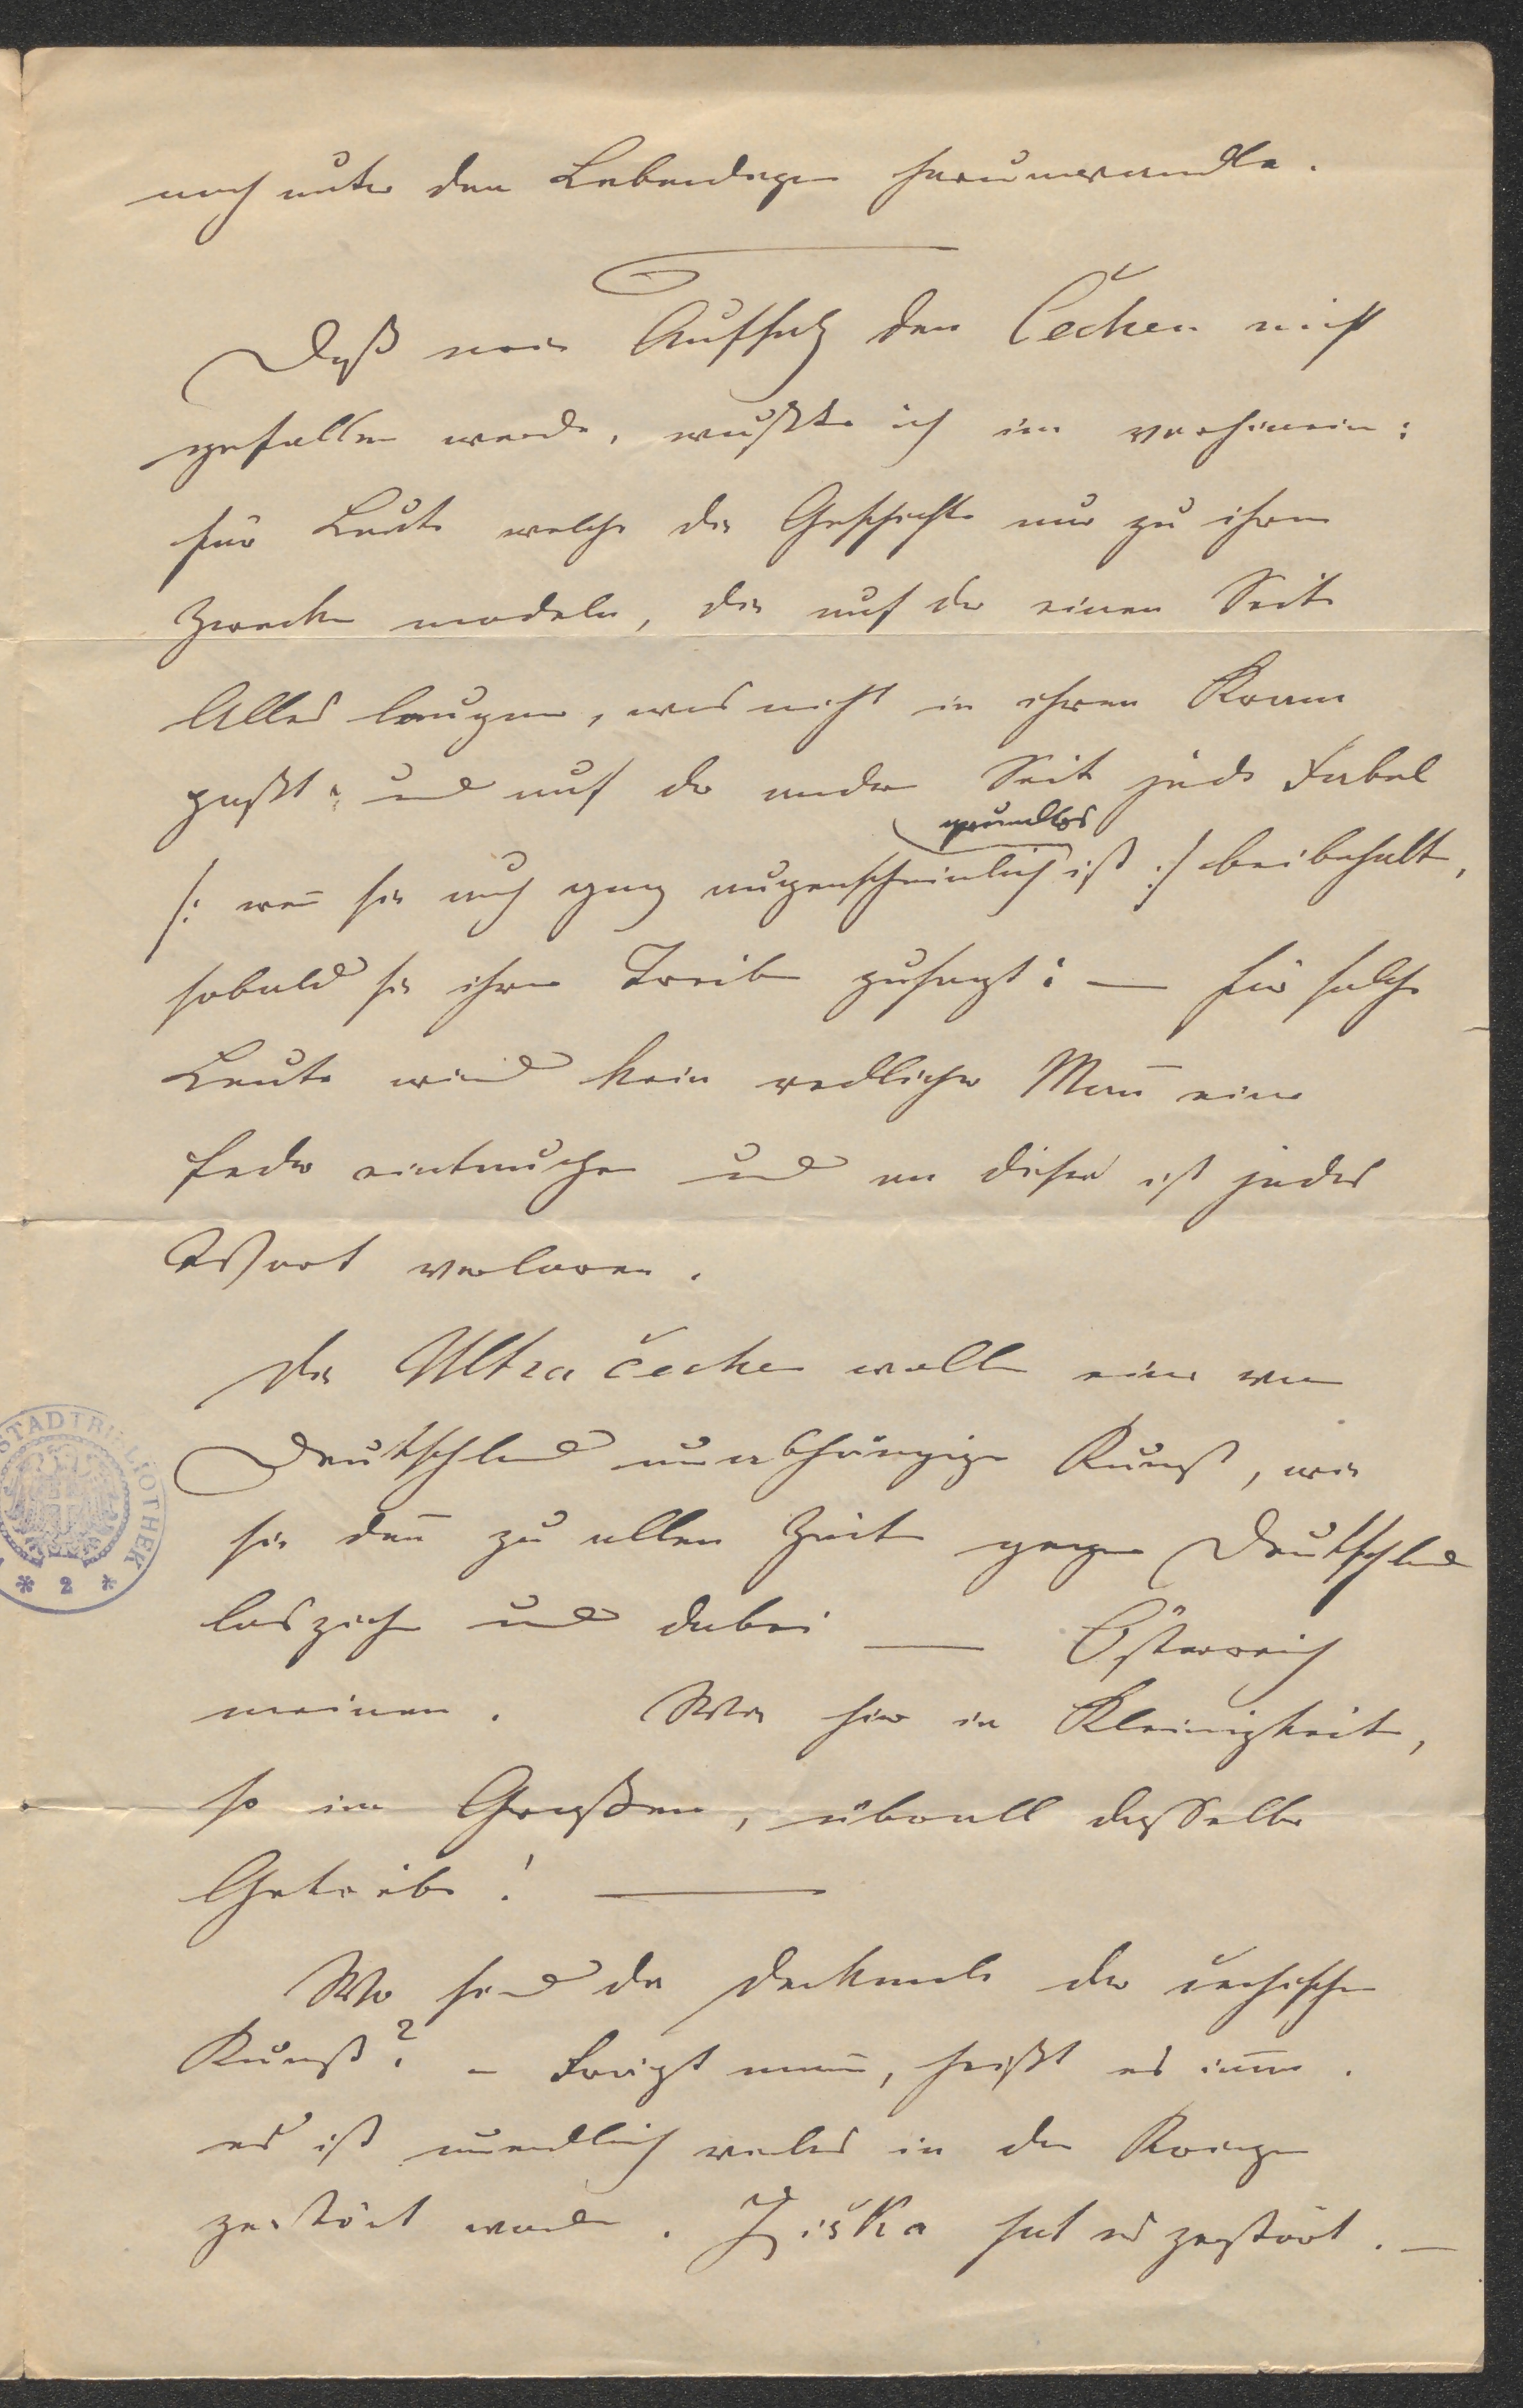 noch unter den Lebendigen herumwandle.
Daß mein Aufsatz den Čechen nicht
gefallen werde, wußte ich im vorhinein:
für Leute welche die Geschichte nur zu ihren
Zwecken modeln, die auf der einen Seite
Alles laugnen, was nicht in ihren Kram
paßt, und auf der andern Seite jede Fabel
grundlos
/: wen̄ sie auch ganz augenscheinlich ist :/ beibehalten,
sobald sie ihren Treiben zusagt: — für solche
Leute wird kein redlicher Man̄ eine
Feder eintauchen und an diesen ist jedes
Wort verloren.
Die Ultračechen wollen eine von
Deutschland unabhängige Kunst, wie
sie den̄ zu allen Zeiten gegen Deutschland
losziehen und dabei — Österreich
meinen. Wie hier in Kleinigkeiten,
so im Großen, überall dasselbe
Getriebe! —
Wo sind die Denkmale der čechischen
Kunst? – Frägt man, heißt es im̄er.
es ist unendlich vieles in den Kriegen
zerstört worden. Žiška hat es zerstört. —
STADTBIBLIOTHEK
* 2 *